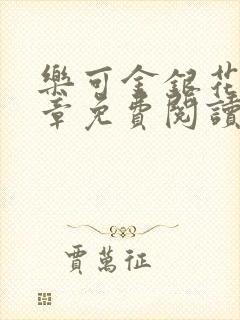 樂可金銀花
章免費閱讀
賈萬征